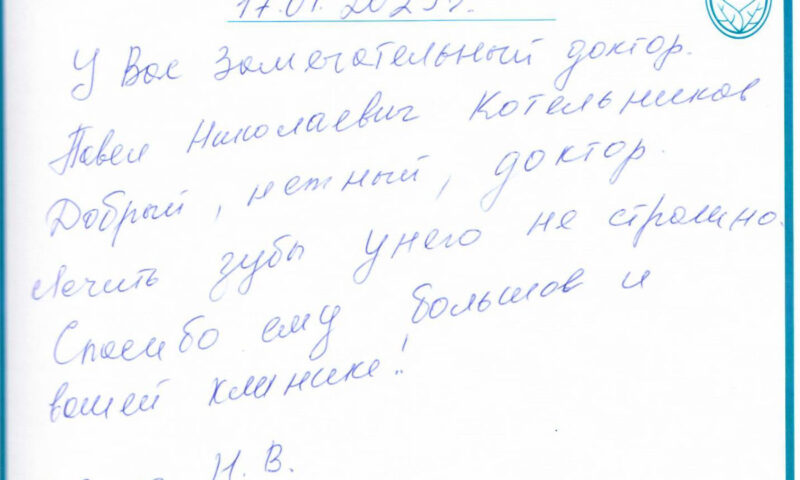 17.01.2023г.
У Вас замечательный доктор.
Павел Николаевич Котельников
Добрый, нежный, доктор.
Лечить зубы у него не страшно.
Спасибо ему большое и
вашей клинике!
Н. В.